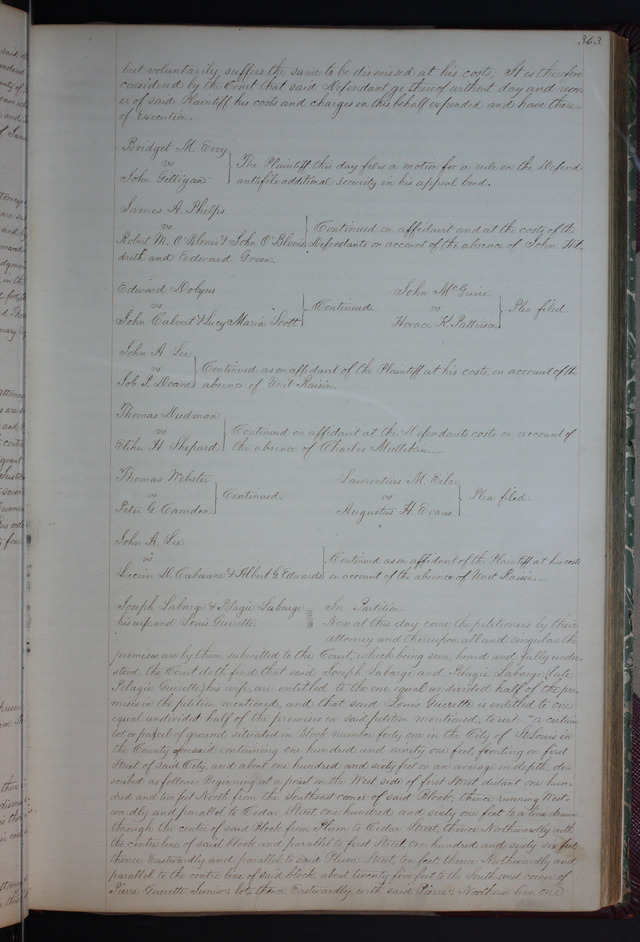 363
but voluntarily suffers the same to be dismissed at his costs; It is therefore
considered by the Court that said Defendant go thereof without day and recov-
er of said Plaintiff his costs and charges in this behalf expended and have there-
of Execution.
Bridget M. Evoy
vs
John Gilligan
The Plaintiff this day files a motion for a rule on the Defend-
ant to file additional security on his appeal bond.
James H. Phelps
vs
Robert M. O'Blenis & John O'Blenis
Continued on affidavit and at the costs of the
Defendants on account of the absence of John Hil-
dreth and Edward Green.
Edward Dobyns
vs
John Calvert & Lucy Maria Scott
Continued.
John McGuire
vs
Horace K. Patterson
Plea filed.
John A. Lee
vs
Job P. Doane
Continued as on affidavit of the Plaintiff at his costs, on account of the
absence of Unit Raisin.
Thomas Dudman
vs
Elihu H. Shepard
Continued on affidavit at the Defendants costs on account of
the absence of Charles Mullikin.
Thomas Webster
vs
Peter G. Camden
Continued.
Laurentius M. Eiler
vs
Augustus H. Evans
Plea filed.
John A. Lee
vs
Lucien D. Cabanne & Albert G. Edwards
Continued as on affidavit of the Plaintiff at his costs
on account of the absence of Unit Raisin.
Joseph Labarge & Pelagie Labarge
his wife and Louis Guerette
In Partition.
Now at this day come the petitioners by their
attorney and thereupon all and singular the
premises are by them submitted to the Court, which being seen, heard and fully under-
stood, the Court doth find that said Joseph Labarge and Pelagie Labarge (late
Pelagie Guerette) his wife, are entitled to the one equal undivided half of the pre-
mises in the petition mentioned, and that said Louis Guerette is entitled to one
equal undivided half of the premises in said petition mentioned, to wit: "a certain
lot or parcel of ground situated in Block number forty one in the City of St Louis in
the County aforesaid containing one hundred and ninety one feet, fronting on first
Street of said City and about one hundred and sixty feet on an average in depth, de-
scribed as follows: Beginning at a point on the West side of first Street distant one hun-
dred and ten feet North from the Southeast corner of said Block, thence running West-
wardly and parallel to Cedar Street one hundred and sixty one feet to a line drawn
through the centre of said Block from Plum to Cedar Street, thence Northwardly with
the centre line of said block and parallel to first Street one hundred and sixty six feet
thence Eastwardly and parallel to said Plum Street, ten feet, thence Northwardly and
parallel to the centre line of said block about twenty five feet to the South west corner of
Pierre Guerette Junior's lot, thence Eastwardley with said Pierre's Northern line, one